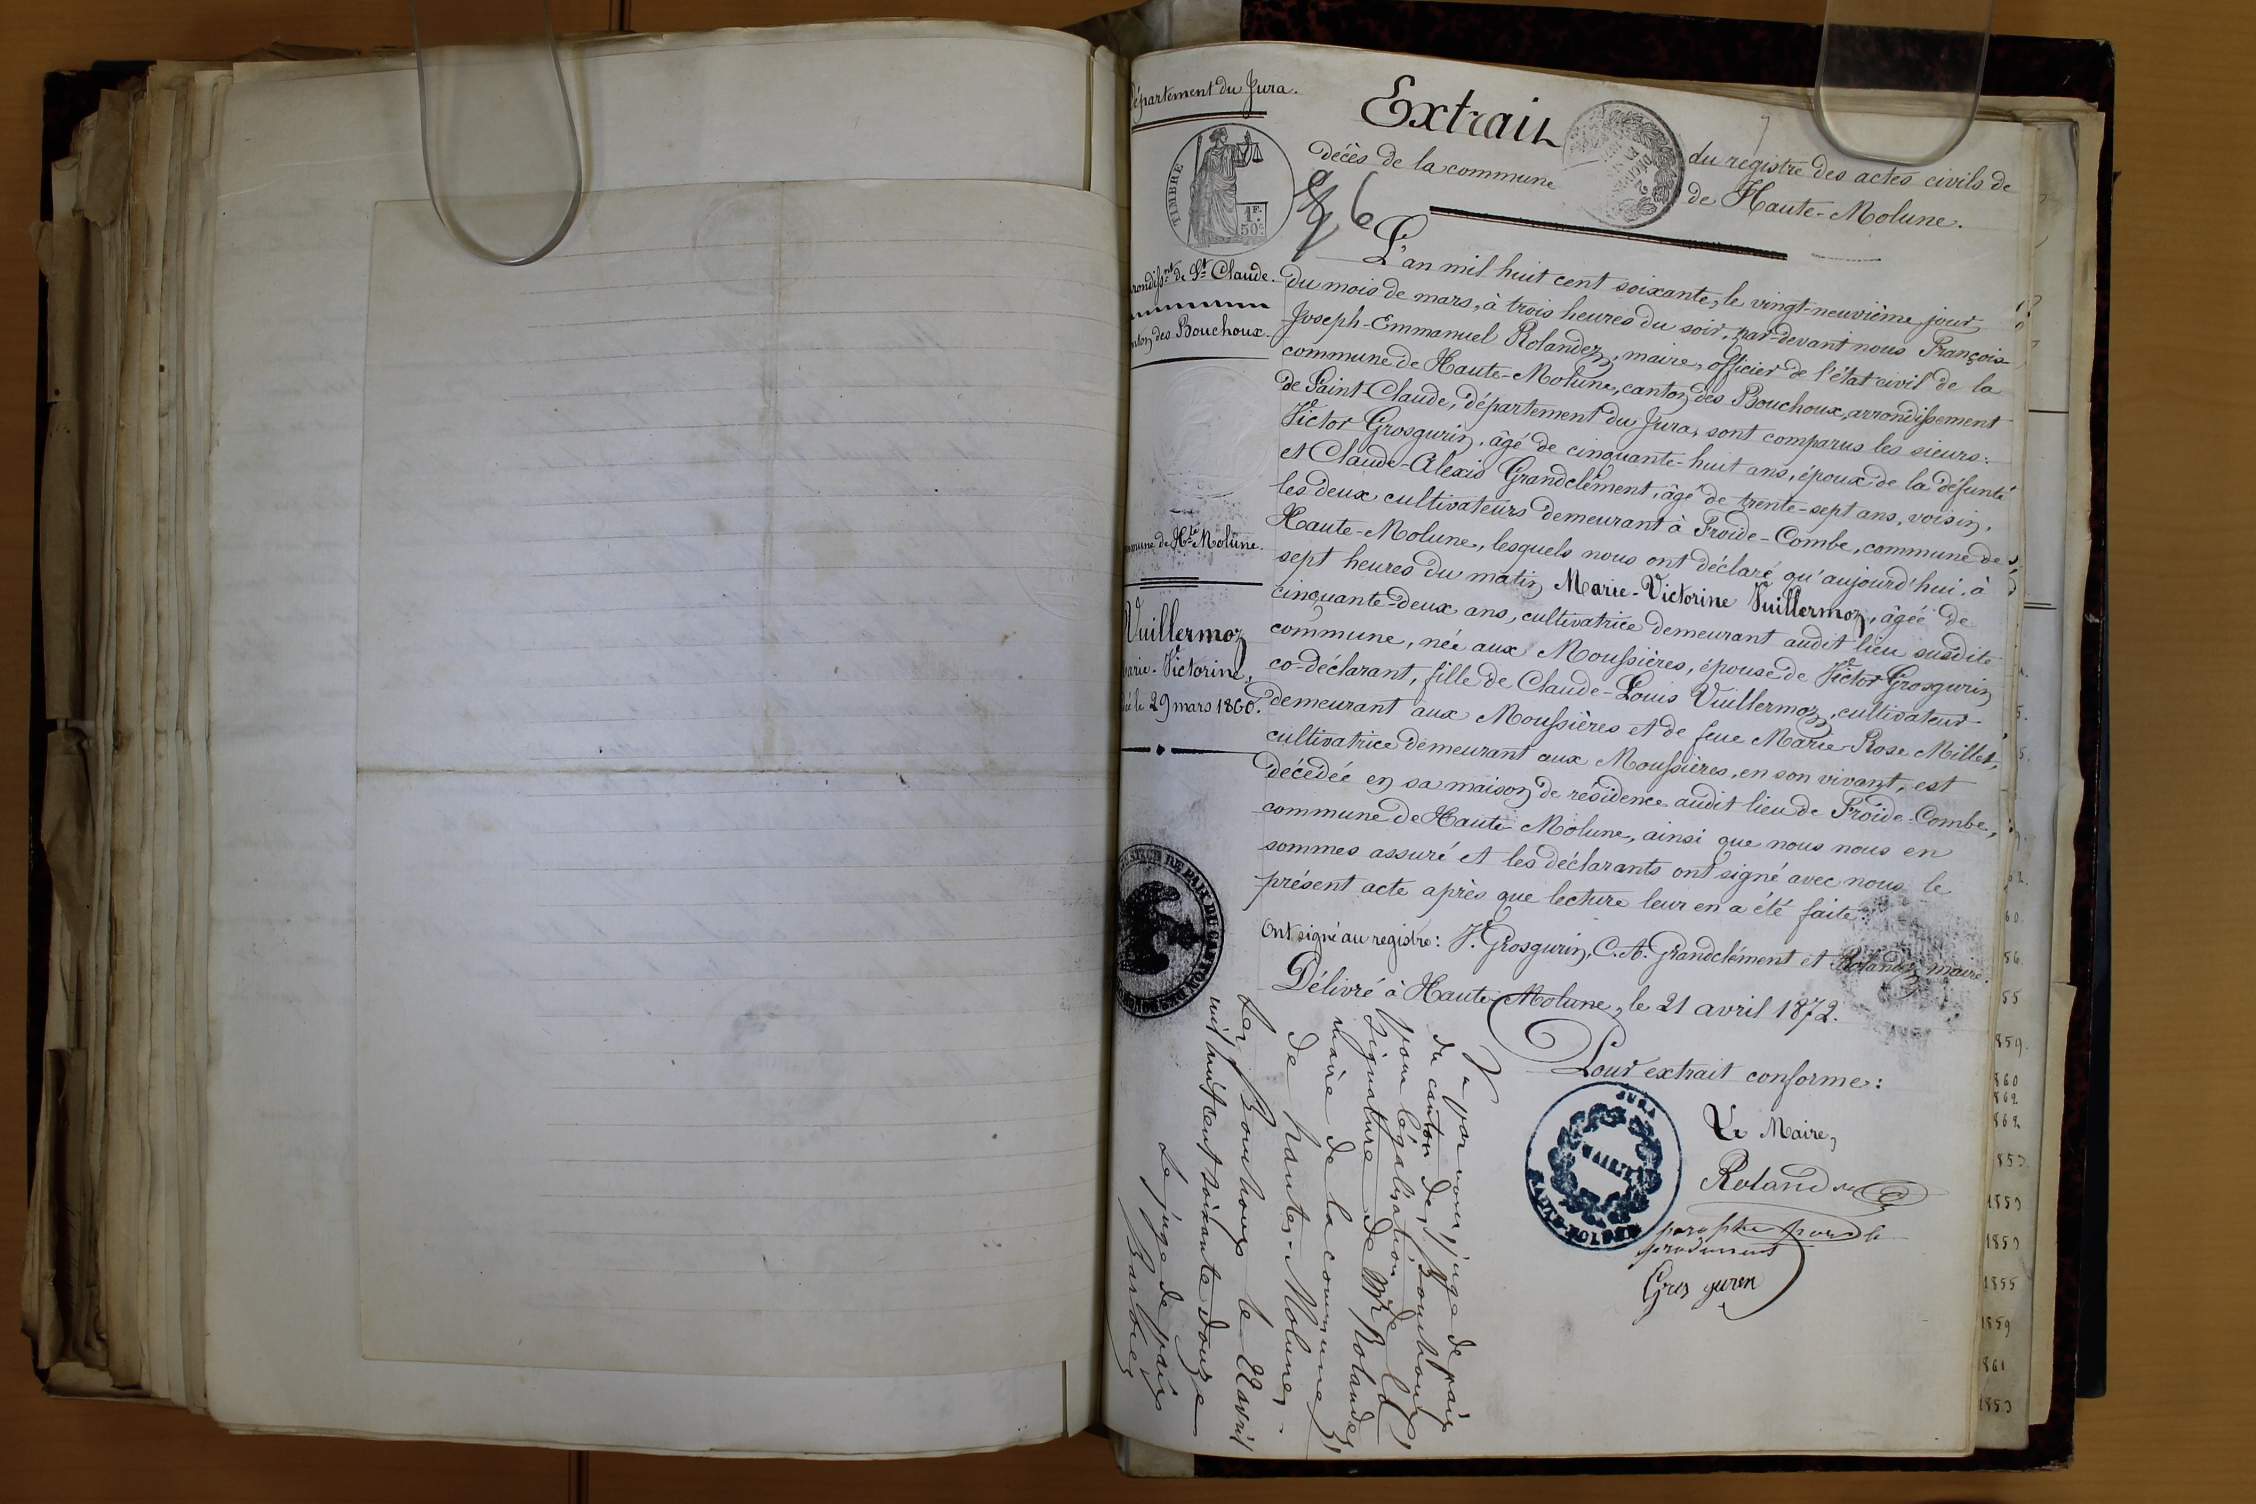 Département du Jura.
Extrait
du registre des actes civils de
décès de la commune
de Haute-Molune.
TIMBRE
1F.
50c.
2
DÉCIMES
96
arrondissnt de St Claude.
canton des Bouchoux.
commune de Hte Molune.
Vuillermoz
Marie-Victorine,
décédée le 29 mars 1860.
L'an mil huit cent soixante, le vingt-neuvième jour
du mois de mars, à trois heures du soir, par-devant nous François-
Joseph-Emmanuel Rolandez, maire, officier de l'état civil de la
commune de Haute-Molune, canton des Bouchoux, arrondissement
de Saint-Claude, département du Jura, sont comparus les sieurs:
Victor Grosgurin, âgé de cinquante-huit ans, époux de la défunte
et Claude-Alexis Grandclément, âgé de trente-sept ans, voisin,
les deux cultivateurs demeurant à Froide-Combe, commune de
Haute-Molune, lesquels nous ont déclaré qu'aujourd'hui, à
sept heures du matin Marie-Victorine Vuillermoz, âgée de
cinquante-deux ans, cultivatrice demeurant audit lieu susdite
commune, née aux Moussières, épouse de Victor Grosgurin
co-déclarant, fille de Claude-Louis Vuillermoz, cultivateur
demeurant aux Moussières et de feue Marie-Rose Millet,
cultivatrice demeurant aux Moussières, en son vivant, est
décédée en sa maison de résidence audit lieu de Froide-Combe,
commune de Haute Molune, ainsi que nous nous en
sommes assuré et les déclarants ont signé avec nous le
présent acte après que lecture leur en a été faite.
Ont signé au registre: V. Grosgurin, C. A. Grandclément et Rolandez maire.
Délivré à Haute-Molune, le 21 avril 1872.
Pour extrait conforme:
Le Maire,
Rolandez
JURA
MAIRIE
paraphé par le
Gros gurin
Vu par nous, juge de paix
du canton des Bouchoux
pour légalisation de la
signature de Mr Rolandez
maire de la commune
de hautes-Molunes.
Les Bouchoux le 22 avril
mil huit cent soixante douze
Le juge de paix
JUSTICE DE PAIX DU CANTON DES BOUCHOUX